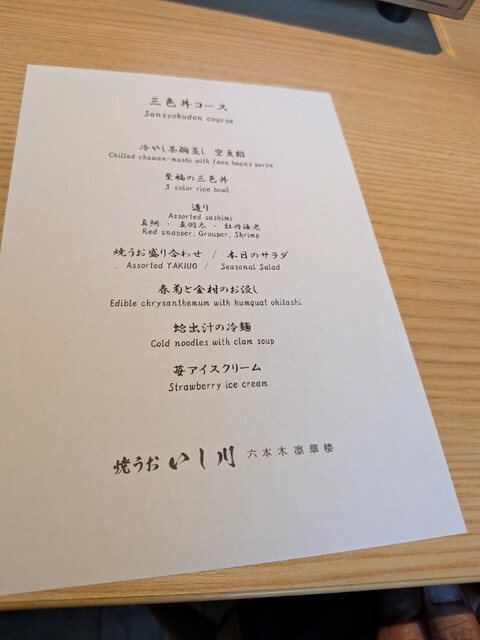 三色丼コース
Sansyokudon course
冷やし茶碗蒸し 空豆餡
Chilled chawan-mushi with fava beans purée
至福の三色丼
3 color rice bowl
造り
Assorted sashimi
真鯛 ・ 真羽太 ・ 牡丹海老
Red snapper, Grouper, Shrimp
焼うお盛り合わせ / 本日のサラダ
Assorted YAKIUO / Seasonal Salad
春菊と金柑のお浸し
Edible chrysanthemum with kumquat ohitashi
蛤出汁の冷麺
Cold noodles with clam soup
苺アイスクリーム
Strawberry ice cream
焼うお いし川 六本木 凛華楼